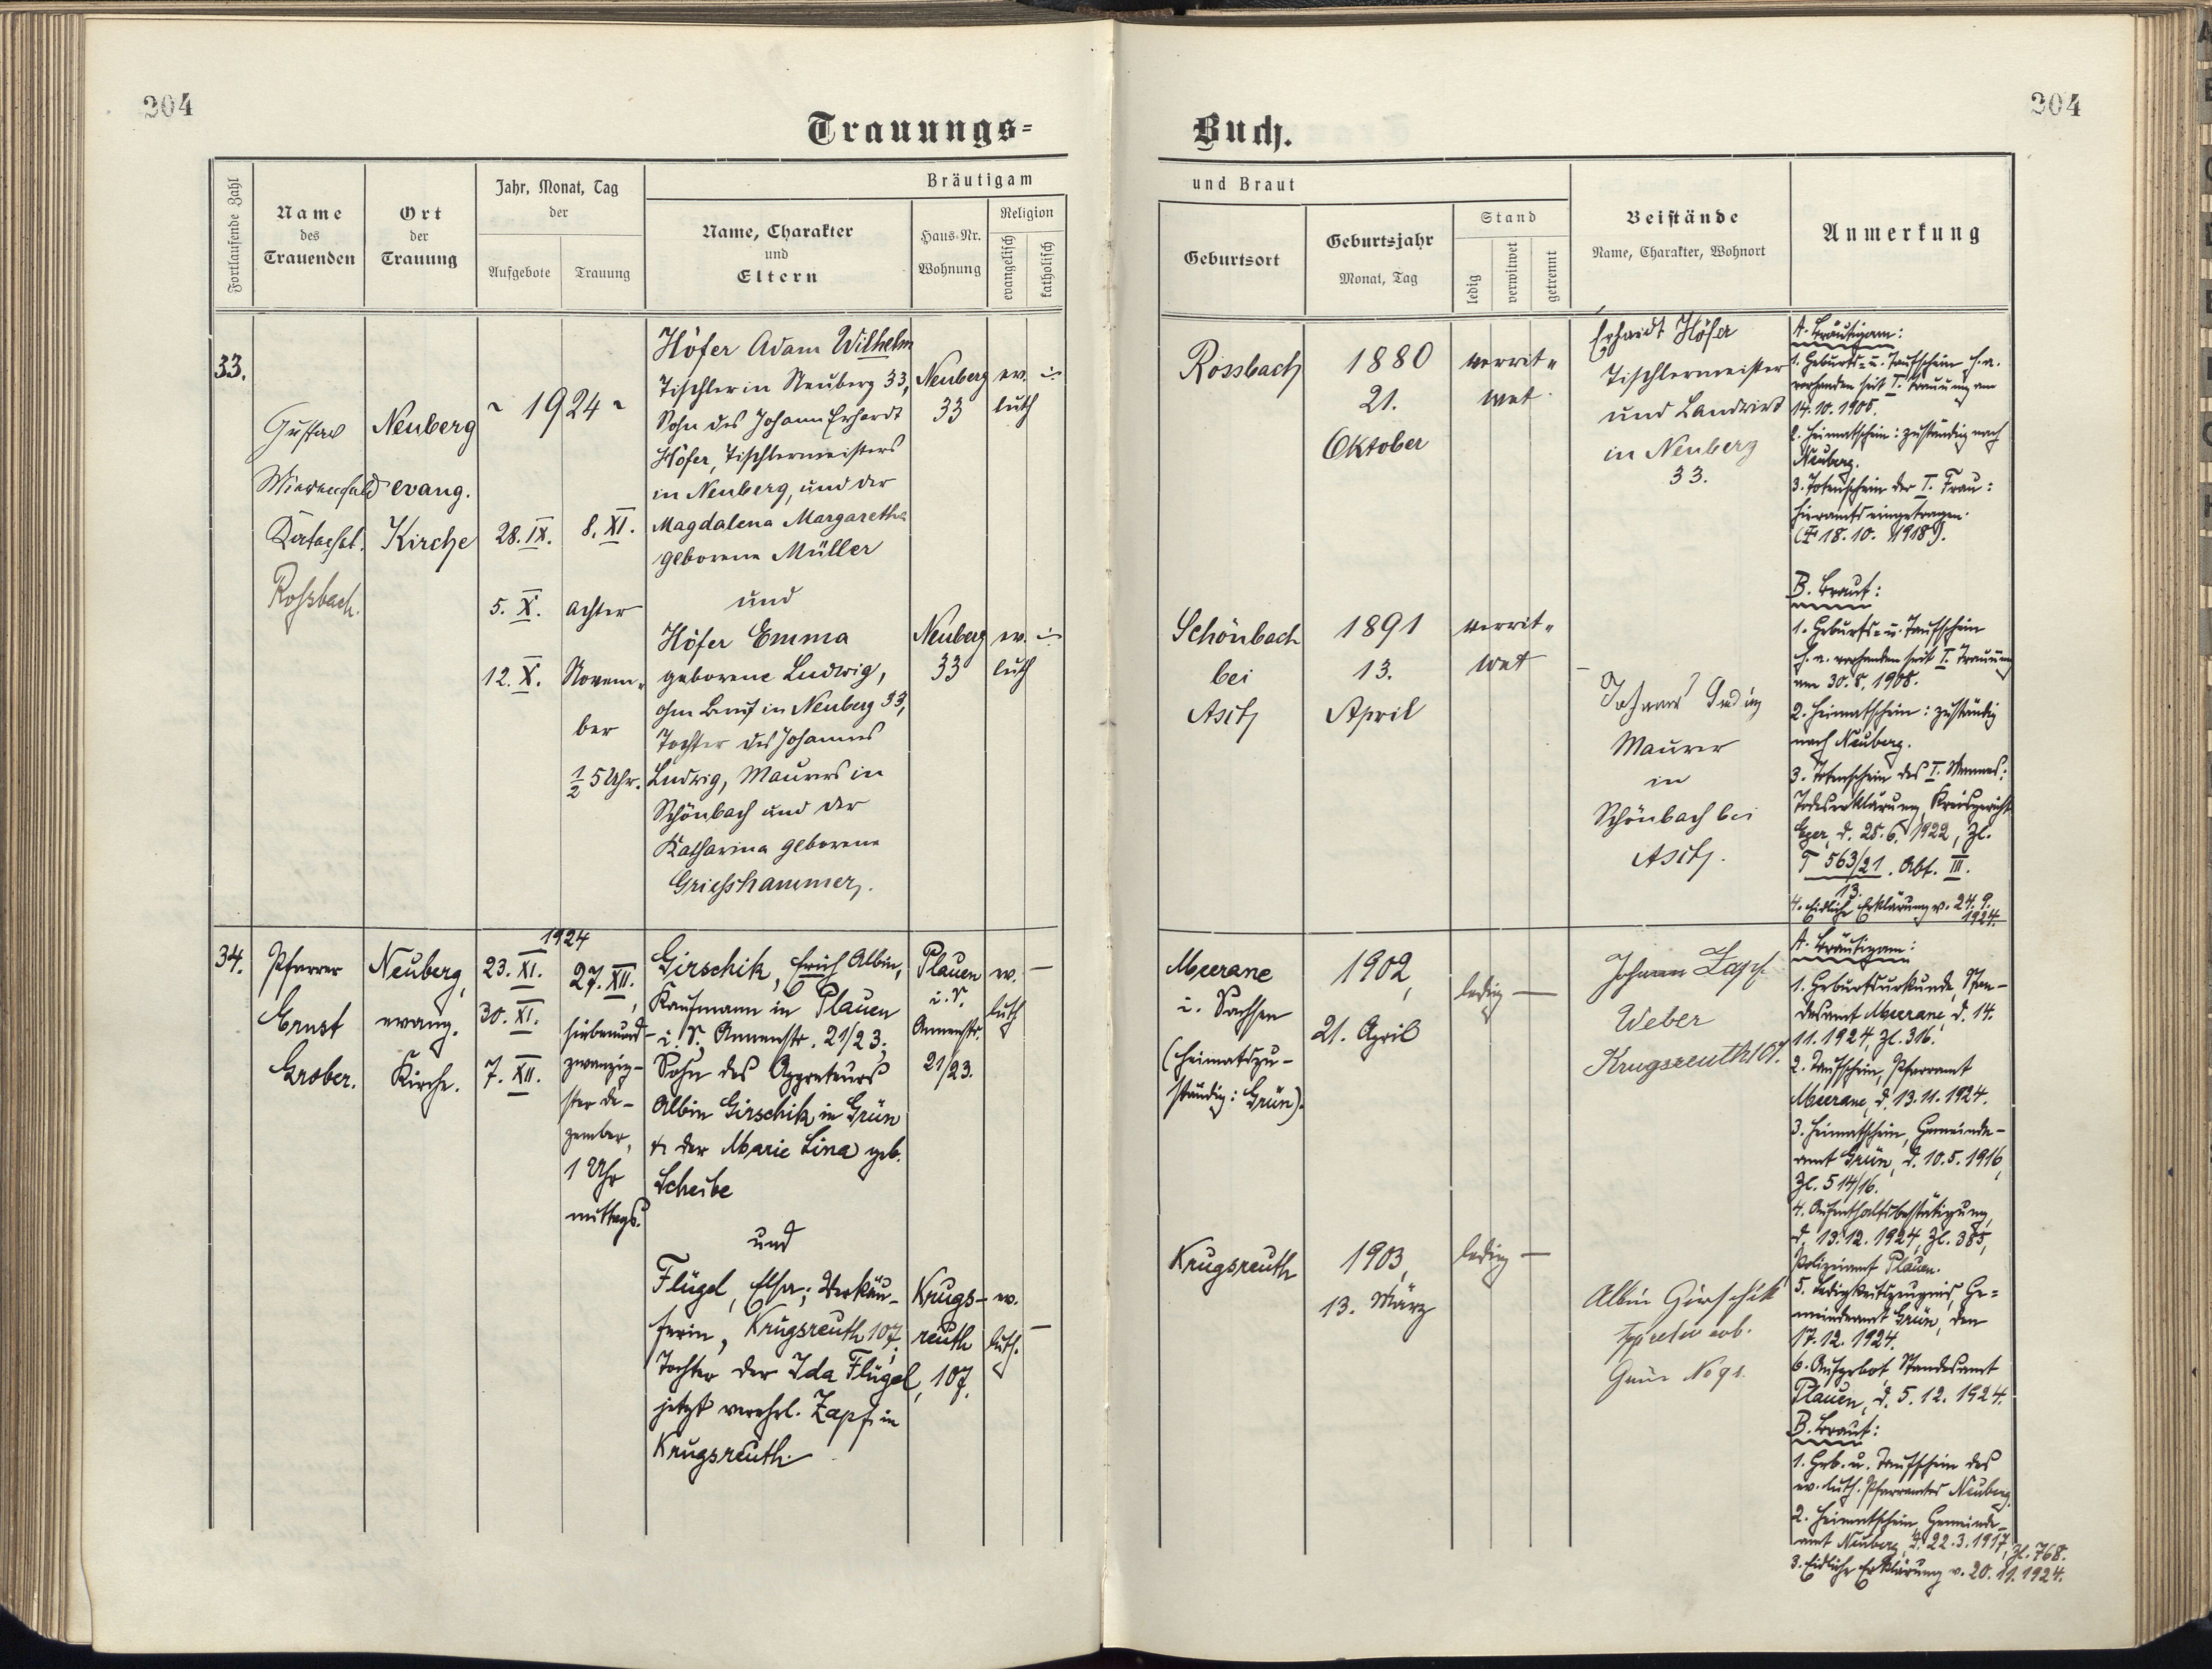 204
204
Trauungs=
Buch.
Fortlaufende Zahl
Name
des
Trauenden
Ort
der
Trauung
Jahr, Monat, Tag
der
Aufgebote
Trauung
Bräutigam
Name, Charakter
und
Eltern
Haus-Nr.
Wohnung
Religion
evangelisch
katholisch
und Braut
Geburtsort
Geburtsjahr
Monat, Tag
Stand
ledig
verwitwet
getrennt
Beistände
Name, Charakter, Wohnort
Anmerkung
33.
Gustav
Rossbach.
Neuberg
evang.
Kirche
~ 1924 ~
28. IX.
5. X.
12. X.
8. XI.
Achter
Novem-
ber
1/2 5 Uhr.
Höfer Adam Wilhelm
Tischler in Neuberg 33,
Sohn des Johann Erhardt
Höfer, Tischlermeisters
in Neuberg, und der
Magdalena Margaretha
geborene Müller
und
Höfer Emma
geborene Ludwig,
ohne Beruf in Neuberg 33,
Tochter des Johannes
Ludwig, Maurers in
Schönbach und der
Katharina geborene
Griesshammer.
Neuberg
33
ev.
luth
Neuberg
33
ev.
luth
Rossbach
1880
21.
Oktober
verwit-
wet
Erhardt Höfer
Tischlermeister
und Landwirt
in Neuberg
33.
A. Bräutigam:
1. Geburts- u. Taufschein h. a.
vorhanden seit I. Trauung am
14. 10. 1905.
2. Heimatschein: zuständig nach
Neuberg.
3. Totenschein der I. Frau:
hieramts eingetragen.
(† 18. 10. 1918).
Schönbach
bei
Asch
1891
13.
April
verwit-
wet
Johann Ludwig
Maurer
in
Schönbach bei
Asch.
B. Braut:
1. Geburts- u. Taufschein
h. a. vorhanden seit I. Trauung
am 30. 8. 1908.
2. Heimatschein: zuständig
nach Neuberg.
3. Totenschein des I. Mannes:
Todeserklärung, Kreisgericht
Eger, d. 28. 6. 1922, Zl.
T 563/21. Abt. III.
13.
4. Eidliche Erklärung v. 24. 9.
1924.
34.
Pfarrer
Ernst
Grober.
Neuberg,
evang.
Kirche.
1924
23. XI.
30. XI.
7. XII.
27. XII.,
siebenund-
zwanzig-
ster De-
zember,
1 Uhr
mittags.
Girschik, Erich Albin,
Kaufmann in Plauen
i. V. Annenstr. 21/23,
Sohn des Appreteurs
Albin Girschik in Grün
& der Marie Lina geb.
Scheibe
und
Flügel, Elsa; Verkäu-
ferin, Krugsreuth 107,
Tochter der Ida Flügel,
jetzt verehel. Zapf in
Krugsreuth.
Plauen
i. V.
Annenstr.
21/23.
ev.
luth
Krugs-
reuth
107.
ev.
luth.
Meerane
i. Sachsen
(heimatzu-
ständig: Grün).
1902,
21. April
ledig
Johann Zapf
Weber
Krugsreuth 107.
A. Bräutigam:
1. Geburtsurkunde, Stan-
desamt Meerane, d. 14.
11. 1924, Zl. 316.
2. Taufschein, Pfarramt
Meerane, d. 13. 11. 1924.
3. Heimatschein, Gemeinde-
amt Grün, d. 10. 5. 1916,
Zl. 514/16.
4. Aufenthaltsbestätigung,
d. 13. 12. 1924, Zl. 385,
Polizeiamt Plauen.
5. Ledigkeitszeugnis, Ge-
meindeamt Grün, den
17. 12. 1924.
6. Aufgebot, Standesamt
Plauen, d. 5. 12. 1924.
Krugsreuth
1903,
13. März
ledig
Albin Girschik
Grün No 91.
B. Braut:
1. Geb. u. Taufschein des
ev. luth. Pfarramtes Neuberg.
2. Heimatschein, Gemeinde-
amt Neuberg, d. 22. 3. 1917, Zl. 768.
3. Eidliche Erklärung v. 20. 11. 1924.